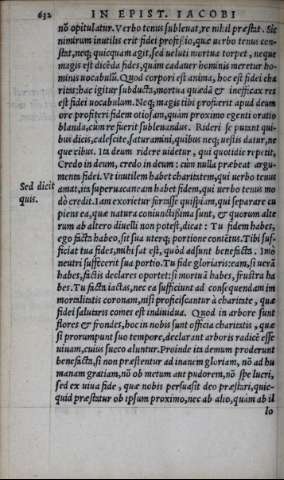 632 IN EPIST. IACOBI
nō opitulatur. Verbo tenus subleuat, re nihil præstat. Sic
nimirum inutilis erit fidei professio, quæ uerbo tenus con-
stat, neq; quicquam agit, sed ueluti mortua torpet, neque
magis est dicēda fides, quàm cadauer hominis meretur ho-
minis uocabulū. Quod corpori est anima, hoc est fidei cha
ritas: hac igitur subducta, mortua quædā & inefficax res
est fidei uocabulum. Neq; magis tibi profuerit apud deum
ore profiteri fidem otiosam, quàm proximo egenti oratio
blanda, cùm re fuerit subleuandus. Rideri se putant qui-
bus dicis, calescite, saturamini, quibus neq; uestis datur, ne
que cibus. Ita deum ridere uidetur, qui quotidie repetit,
Credo in deum, credo in deum: cùm nulla præbeat argu-
menta fidei. Vt inutilem habet charitatem, qui uerbo tenus
Sed dicit amat, ita superuacaneam habet fidem, qui uerbo tenus mo
quis. dò credit. Iam exorietur forasse quispiam, qui separare cu
piens ea, quæ natura coniunctissima sunt, & quorum alte
rum ab altero diuelli non potest, dicat: Tu fidem habes,
ego facta habeo, sit sua uterq; portione contētus. Tibi suf-
ficiat tua fides, mihi sat est, quòd adsunt benefacta. Imò
neutri suffecerit sua portio. Tu fide gloriaris: eam, si uerā
habes, factis declares oportet: si mortuā habes, frustra ha
bes. Tu facta iactas, nec ea sufficiunt ad consequendam im
mortalitatis coronam, nisi proficiscantur à charitate, quæ
fidei salutaris comes est indiuidua. Quod in arbore sunt
flores & frondes, hoc in nobis sunt officia charitatis, quæ
si prorumpunt suo tempore, declarant arboris radicē esse
uiuam, cuius succo aluntur. Proinde ita demum proderunt
benefacta, si non præstentur ad inanem gloriam, nō ad hu
manam gratiam, nō ob metum aut pudorem, nō spe lucri,
sed ex uiua fide, quæ nobis persuasit deo præstari, quic-
quid præstatur ob ipsum proximo, nec ab alio, quàm ab il
lo